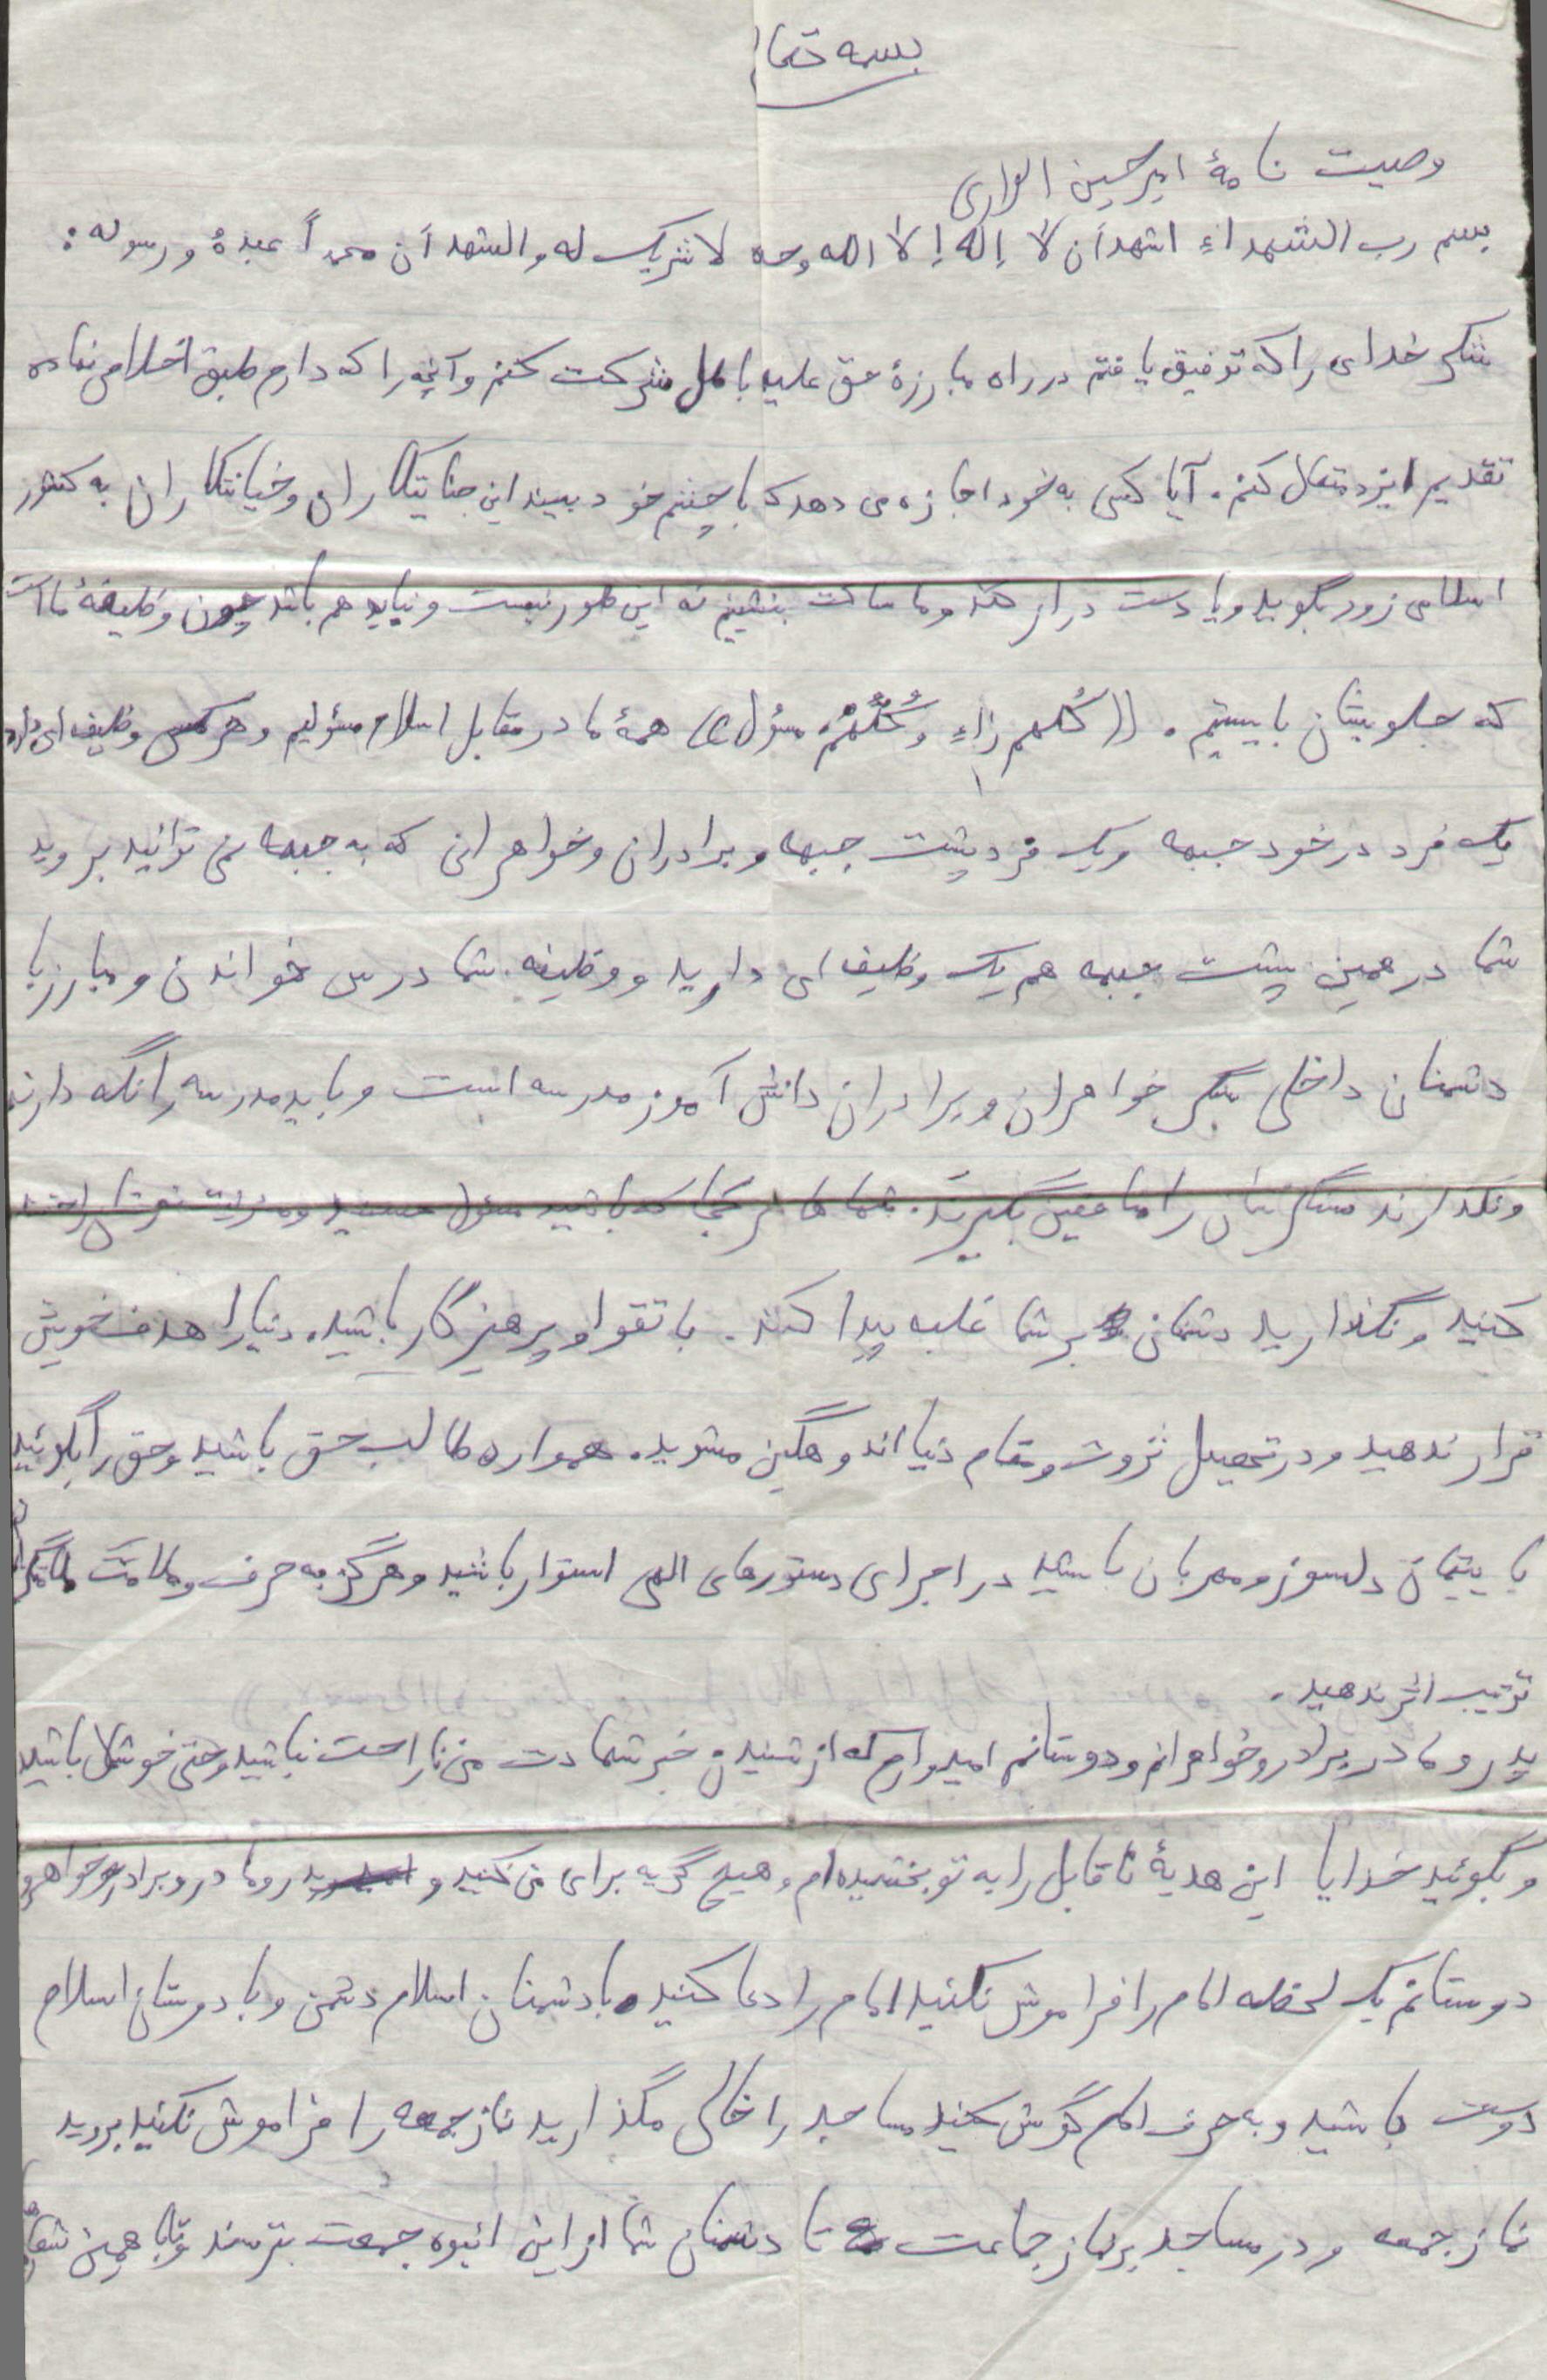 بسمه تعا
وصیت نامهٔ امیرحسین الواری
بسم رب الشهداءِ اشهدأن لا إله إلا الله وحده لا شریک له و الشهد أن محمداً عبدهُ و رسوله :
شکر خدای را که توفیق یافتم در راه مبارزهٔ حق علیه باطل شرکت کنم و آنچه را که دارم طبق اخلاص نهاده
تقدیم ایزد متعال کنم . آیا کسی به خود اجازه می دهد که با چشم خود ببیند این جنایتکاران و خیانتکاران به کشور
اسلامی زور بگوید و یا دست درازی کند و ما ساکت بنشینیم نه این طور نیست و نباید هم باشد چون وظیفهٔ ما است
که جلویشان بایستیم . ((کُلهم راءٍ وَ کُلُّهُمْ مسؤل)) همهٔ ما در مقابل اسلام مسؤلیم و هر کسی وظیفه ای دارد
یک فرد در خود جبهه و یک فرد پشت جبهه و برادران و خواهرانی که به جبهه نمی توانید بروید
شما در همین پشت جبهه هم یک وظیفه ای دارید و وظیفه شما درس خواندن و مبارز با
دشمنان داخلی سنگر خواهران و برادران دانش آموز مدرسه است و باید مدرسه را نگه دارند
و نگذارند سنگرشان را منافقین بگیرند . شماها هر کجا که باشید مسئول هستید
کنید و نگذارید دشمنان بر شما غلبه پیدا کنند . با تقوا و پرهیزگار باشید . دنیا را هدف خویش
قرار ندهید و در تحصیل ثروت و مقام دنیا اندوهگین مشوید . همواره طالب حق باشید و حق را بگوئید
با یتیمان دلسوز و مهربان باشید در اجرای دستورهای الهی استوار باشید و هرگز به حرف و ملامت ملامتگران
ترتیب اثر ندهید .
پدر و مادر برادر و خواهرانم و دوستانم امیدوارم که از شنیدن خبر شهادت من ناراحت نباشید و حتی خوشحال باشید
و بگوئید خدایا این هدیهٔ ناقابل را به تو بخشیده ام و هیچ گریه برای من نکنید و پدر و مادر و برادر و خواهر و
دوستانم یک لحظه امام را فراموش نکنید امام را دعا کنید . با دشمنان اسلام دشمن و با دوستان اسلام
دوست باشید و به حرف امام گوش کنید مساجد را خالی مگذارید نماز جمعه را فراموش نکنید بروید
نماز جمعه و در مساجد بر نماز جماعت تا دشمنان شما از این انبوه جمعت بترسند و با همین